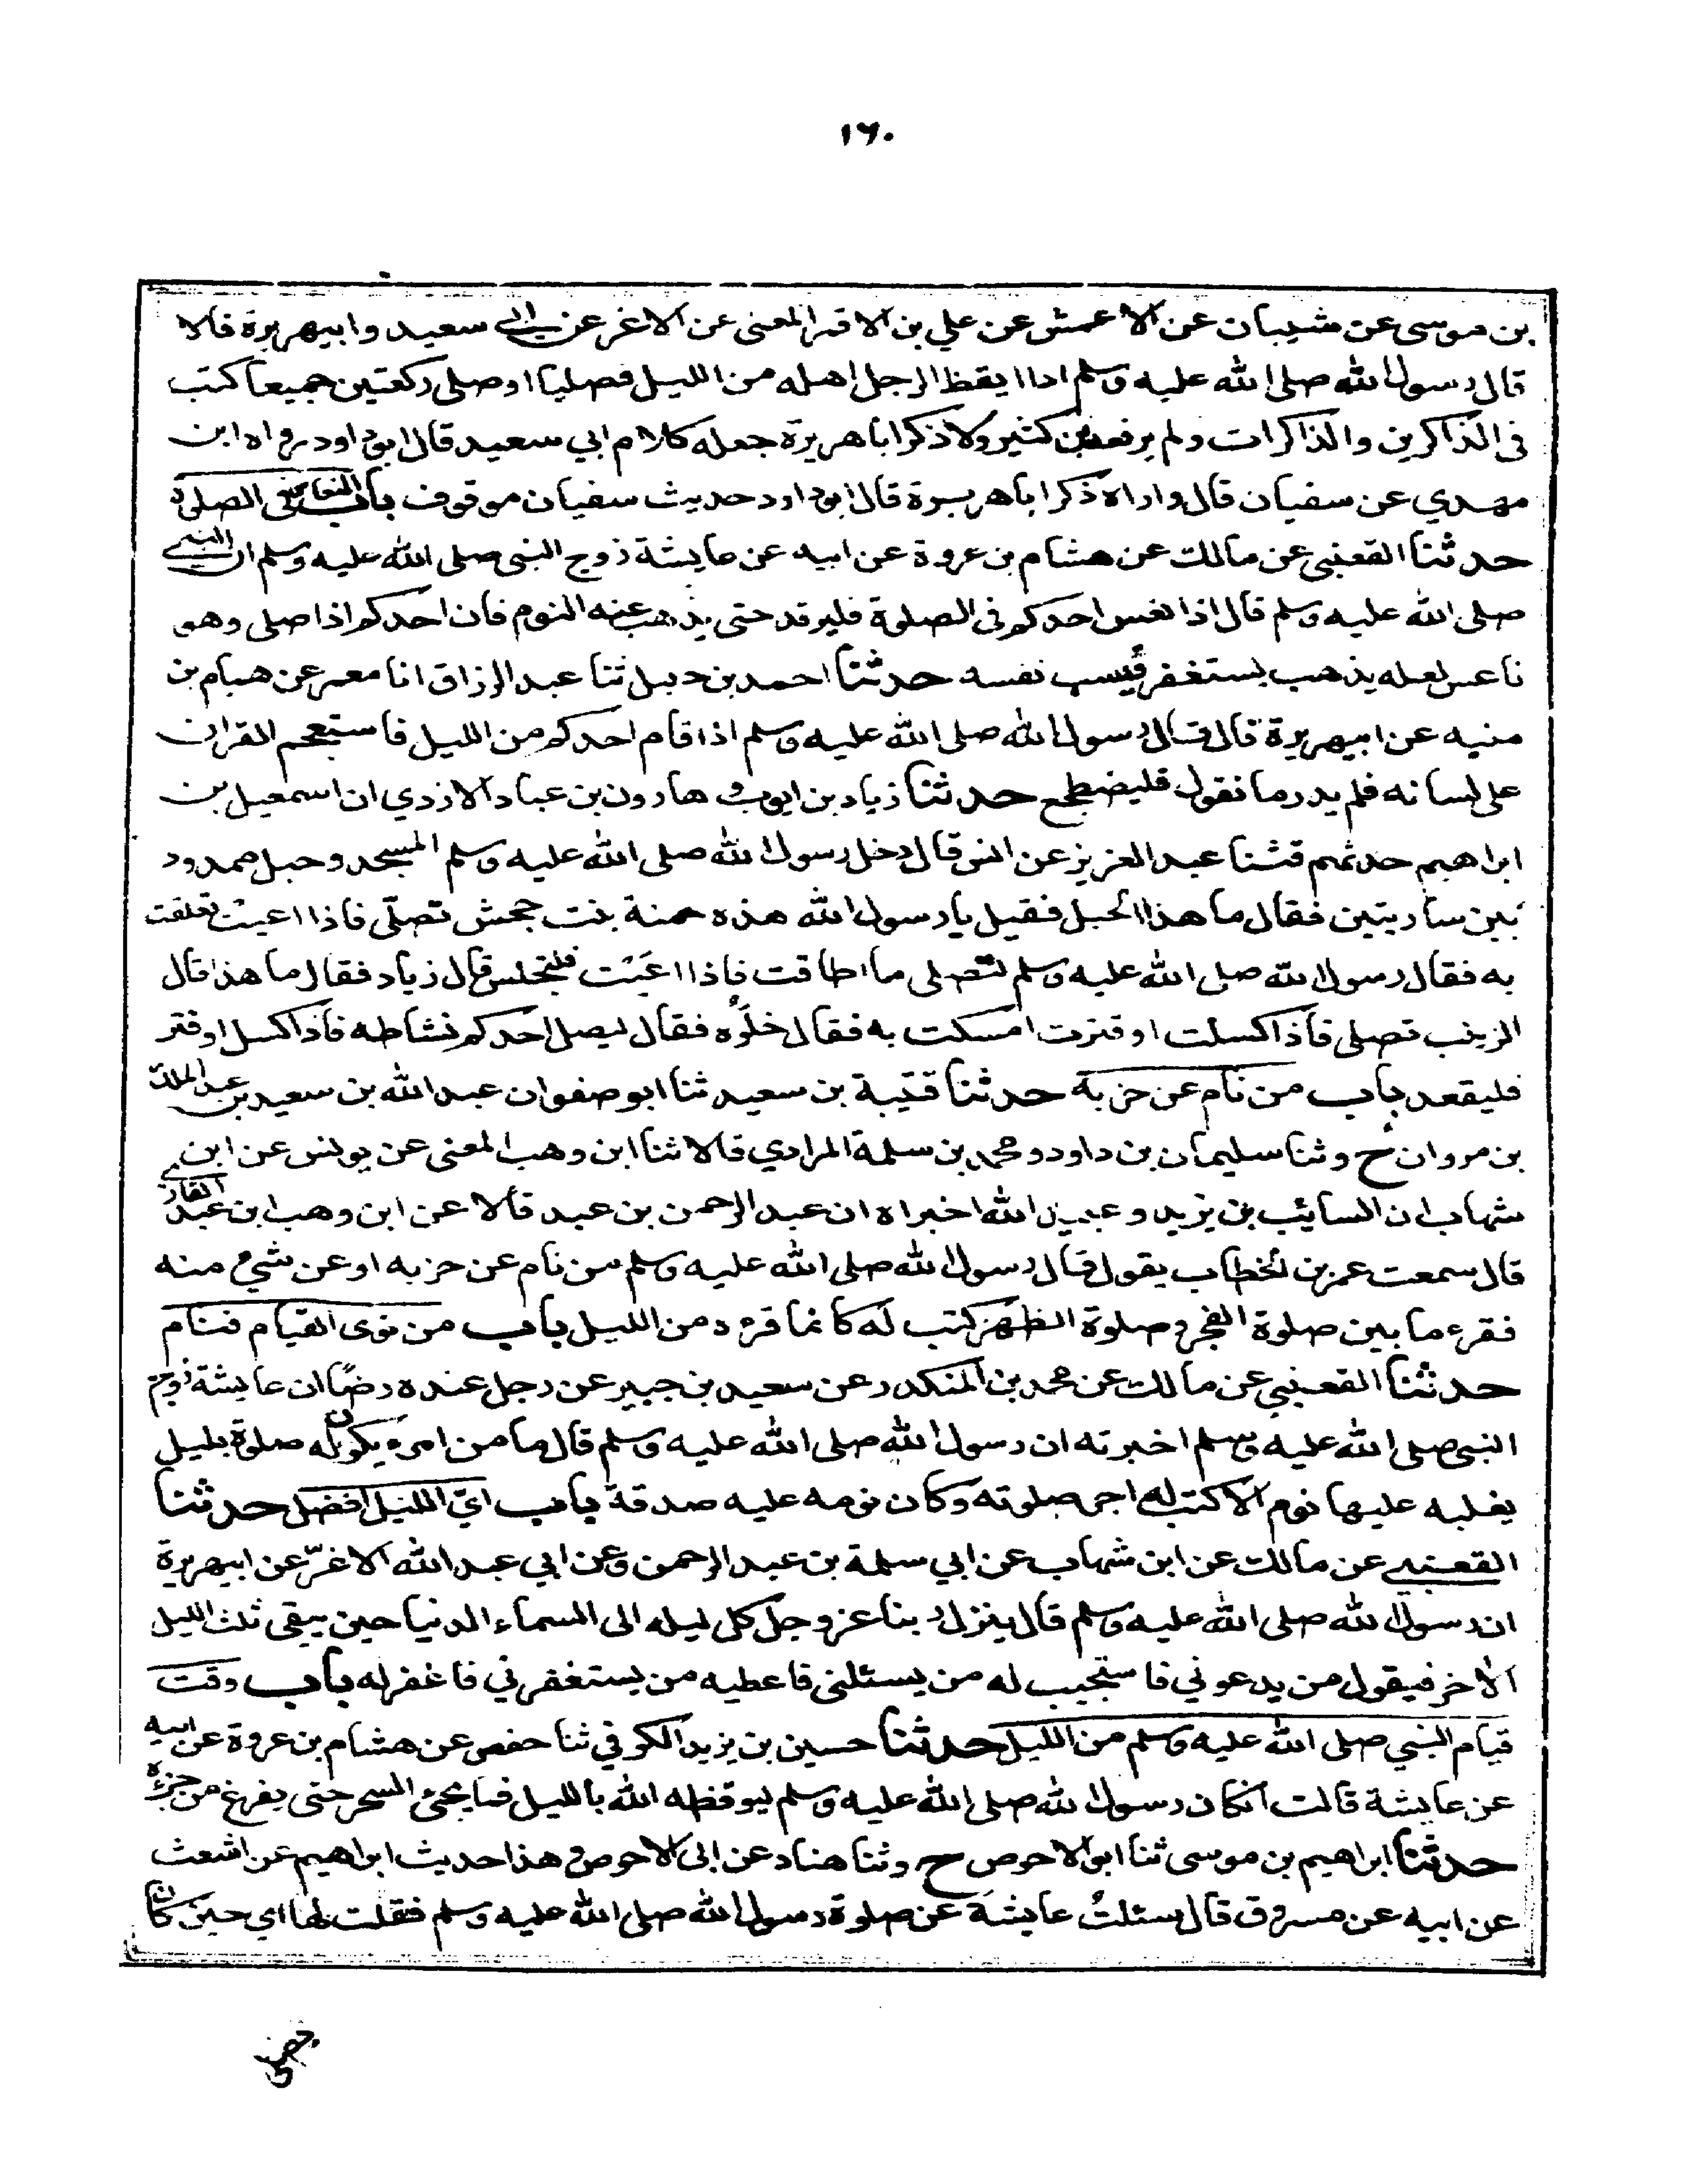 ١٦٠
بن موسى عن شيبان عن الاعمش عن علي بن الاقمر المعنى عن الاغر عن ابي سعيد وابيهريرة قالا
قال رسول الله صلى الله عليه وسلم اذا ايقظ الرجل اهله من الليل فصليا اوصلى ركعتين جميعا كتب
فى الذاكرين والذاكرات ولم يرفعه بن كثير ولا ذكر ابا هريرة جعله كلام ابي سعيد قال ابو داود رواه ابن
مهدي عن سفيان قال واراه ذكر ابا هريرة قال ابو داود حديث سفيان موقوف باب النعاس فى الصلوة
حدثنا القعنبي عن مالك عن هشام بن عروة عن ابيه عن عايشة زوج النبى صلى الله عليه وسلم ان النبي
صلى الله عليه وسلم قال اذا نعس احدكم فى الصلوة فليرقد حتى يذهب عنه النوم فان احدكم اذا صلى وهو
ناعس لعله يذهب يستغفر فيسب نفسه حدثنا احمد بن حنبل ثنا عبد الرزاق انا معمر عن همام بن
منبه عن ابيهريرة قال قال رسول الله صلى الله عليه وسلم اذا قام احدكم من الليل فاستعجم القران
على لسانه فلم يدر ما نقول فليضطجع حدثنا زياد بن ايوب و هارون بن عباد الازدي ان اسمعيل بن
ابراهيم حدثهم قثنا عبد العزيز عن انس قال دخل رسول الله صلى الله عليه وسلم المسجد وحبل ممدود
بين ساريتين فقال ما هذا الحبل فقيل يا رسول الله هذه حمنة بنت جحش تصلّى فاذا اعيت تعلقت
به فقال رسول الله صلى الله عليه وسلم لتصلى ما اطاقت فاذا اعيت فلتجلس قال زياد فقال ما هذا قال
الزينب تصلى فاذا كسلت او فترت امسكت به فقال خلّوه فقال ليصل احدكم نشاطه فاذا كسل اوفتر
فليقعد باب من نام عن حزبه حدثنا قتيبة بن سعيد ثنا ابو صفوان عبد الله بن سعيد بن عبد الملك
بن مروان ح وثنا سليمان بن داود ومحمد بن سلمة المرادي قالا ثنا ابن وهب المعنى عن يونس عن ابن
شهاب ان السايب بن يزيد وعبيد الله اخبراه ان عبد الرحمن بن عبد قالا عن ابن وهب ابن عبد القاري
قال سمعت عمر بن الخطاب يقول قال رسول الله صلى الله عليه وسلم من نام عن حزبه او عن شيء منه
فقرء ما بين صلوة الفجر وصلوة الظهر كتب له كانما قرءه من الليل باب من نوى القيام فنام
حدثنا القعنبي عن مالك عن محمد بن المنكدر عن سعيد بن جبير عن رجل عنده رضًا ان عايشة زوج
النبى صلى الله عليه وسلم اخبرته ان رسول الله صلى الله عليه وسلم قال ما من امرء يكون له صلوة بليل
يغلبه عليها نوم الا كتب له اجر صلوته وكان نومه عليه صدقة باب ايّ الليل افضل حدثنا
القعنبي عن مالك عن ابن شهاب عن ابي سلمة بن عبد الرحمن وعن ابي عبد الله الاغرّ عن ابيهريرة
ان رسول الله صلى الله عليه وسلم قال ينزل ربنا عز وجل كل ليله الى السماء الدنيا حين يبقى ثلث الليل
الاخر فيقول من يدعوني فاستجيب له من يسئلنى فاعطيه من يستغفرني فاغفر له باب وقت
قيام النبي صلى الله عليه وسلم من الليل حدثنا حسين بن يزيد الكوفي ثنا حفص عن هشام بن عروة عن ابيه
عن عايشة قالت انكان رسول الله صلى الله عليه وسلم ليوقظه الله بالليل فما يجئ السحر حتى يفرغ من جزءه
حدثنا ابراهيم بن موسى ثنا ابو الاحوص ح وثنا هناد عن ابى الاحوص وهذا حديث ابراهيم عن اشعث
عن ابيه عن مسروق قال سئلت عايشة عن صلوة رسول الله صلى الله عليه وسلم فقلت لها اي حين كان